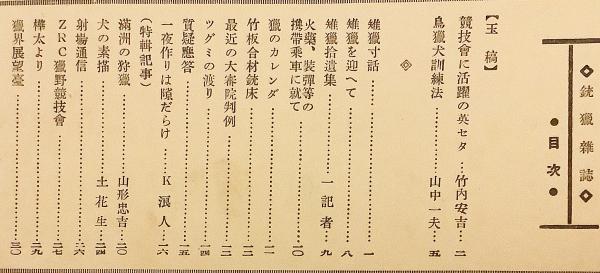 ◇銃獵雜誌◇
●目次●
【玉稿】
競技會に活躍の英セタ…竹内安吉…二
鳥獵犬訓練法…山中一夫…五
◇
雉獵寸話…一
雉獵を迎へて…八
雉獵拾遺集…一記者…九
火藥、裝彈等の
携帶乘車に就て…一〇
獵のカレンダ…一一
竹板合材銃床…一二
最近の大審院判例…一三
ツグミの渡り…一四
質疑應答…一五
一夜作りは隙だらけ…K浪人…一六
(特輯記事)
滿洲の狩獵…山形忠吉…二〇
犬の素描…土花生…二四
射場通信…二六
ZRC獵野競技會…二七
樺太より…二九
獵界展望臺…三〇